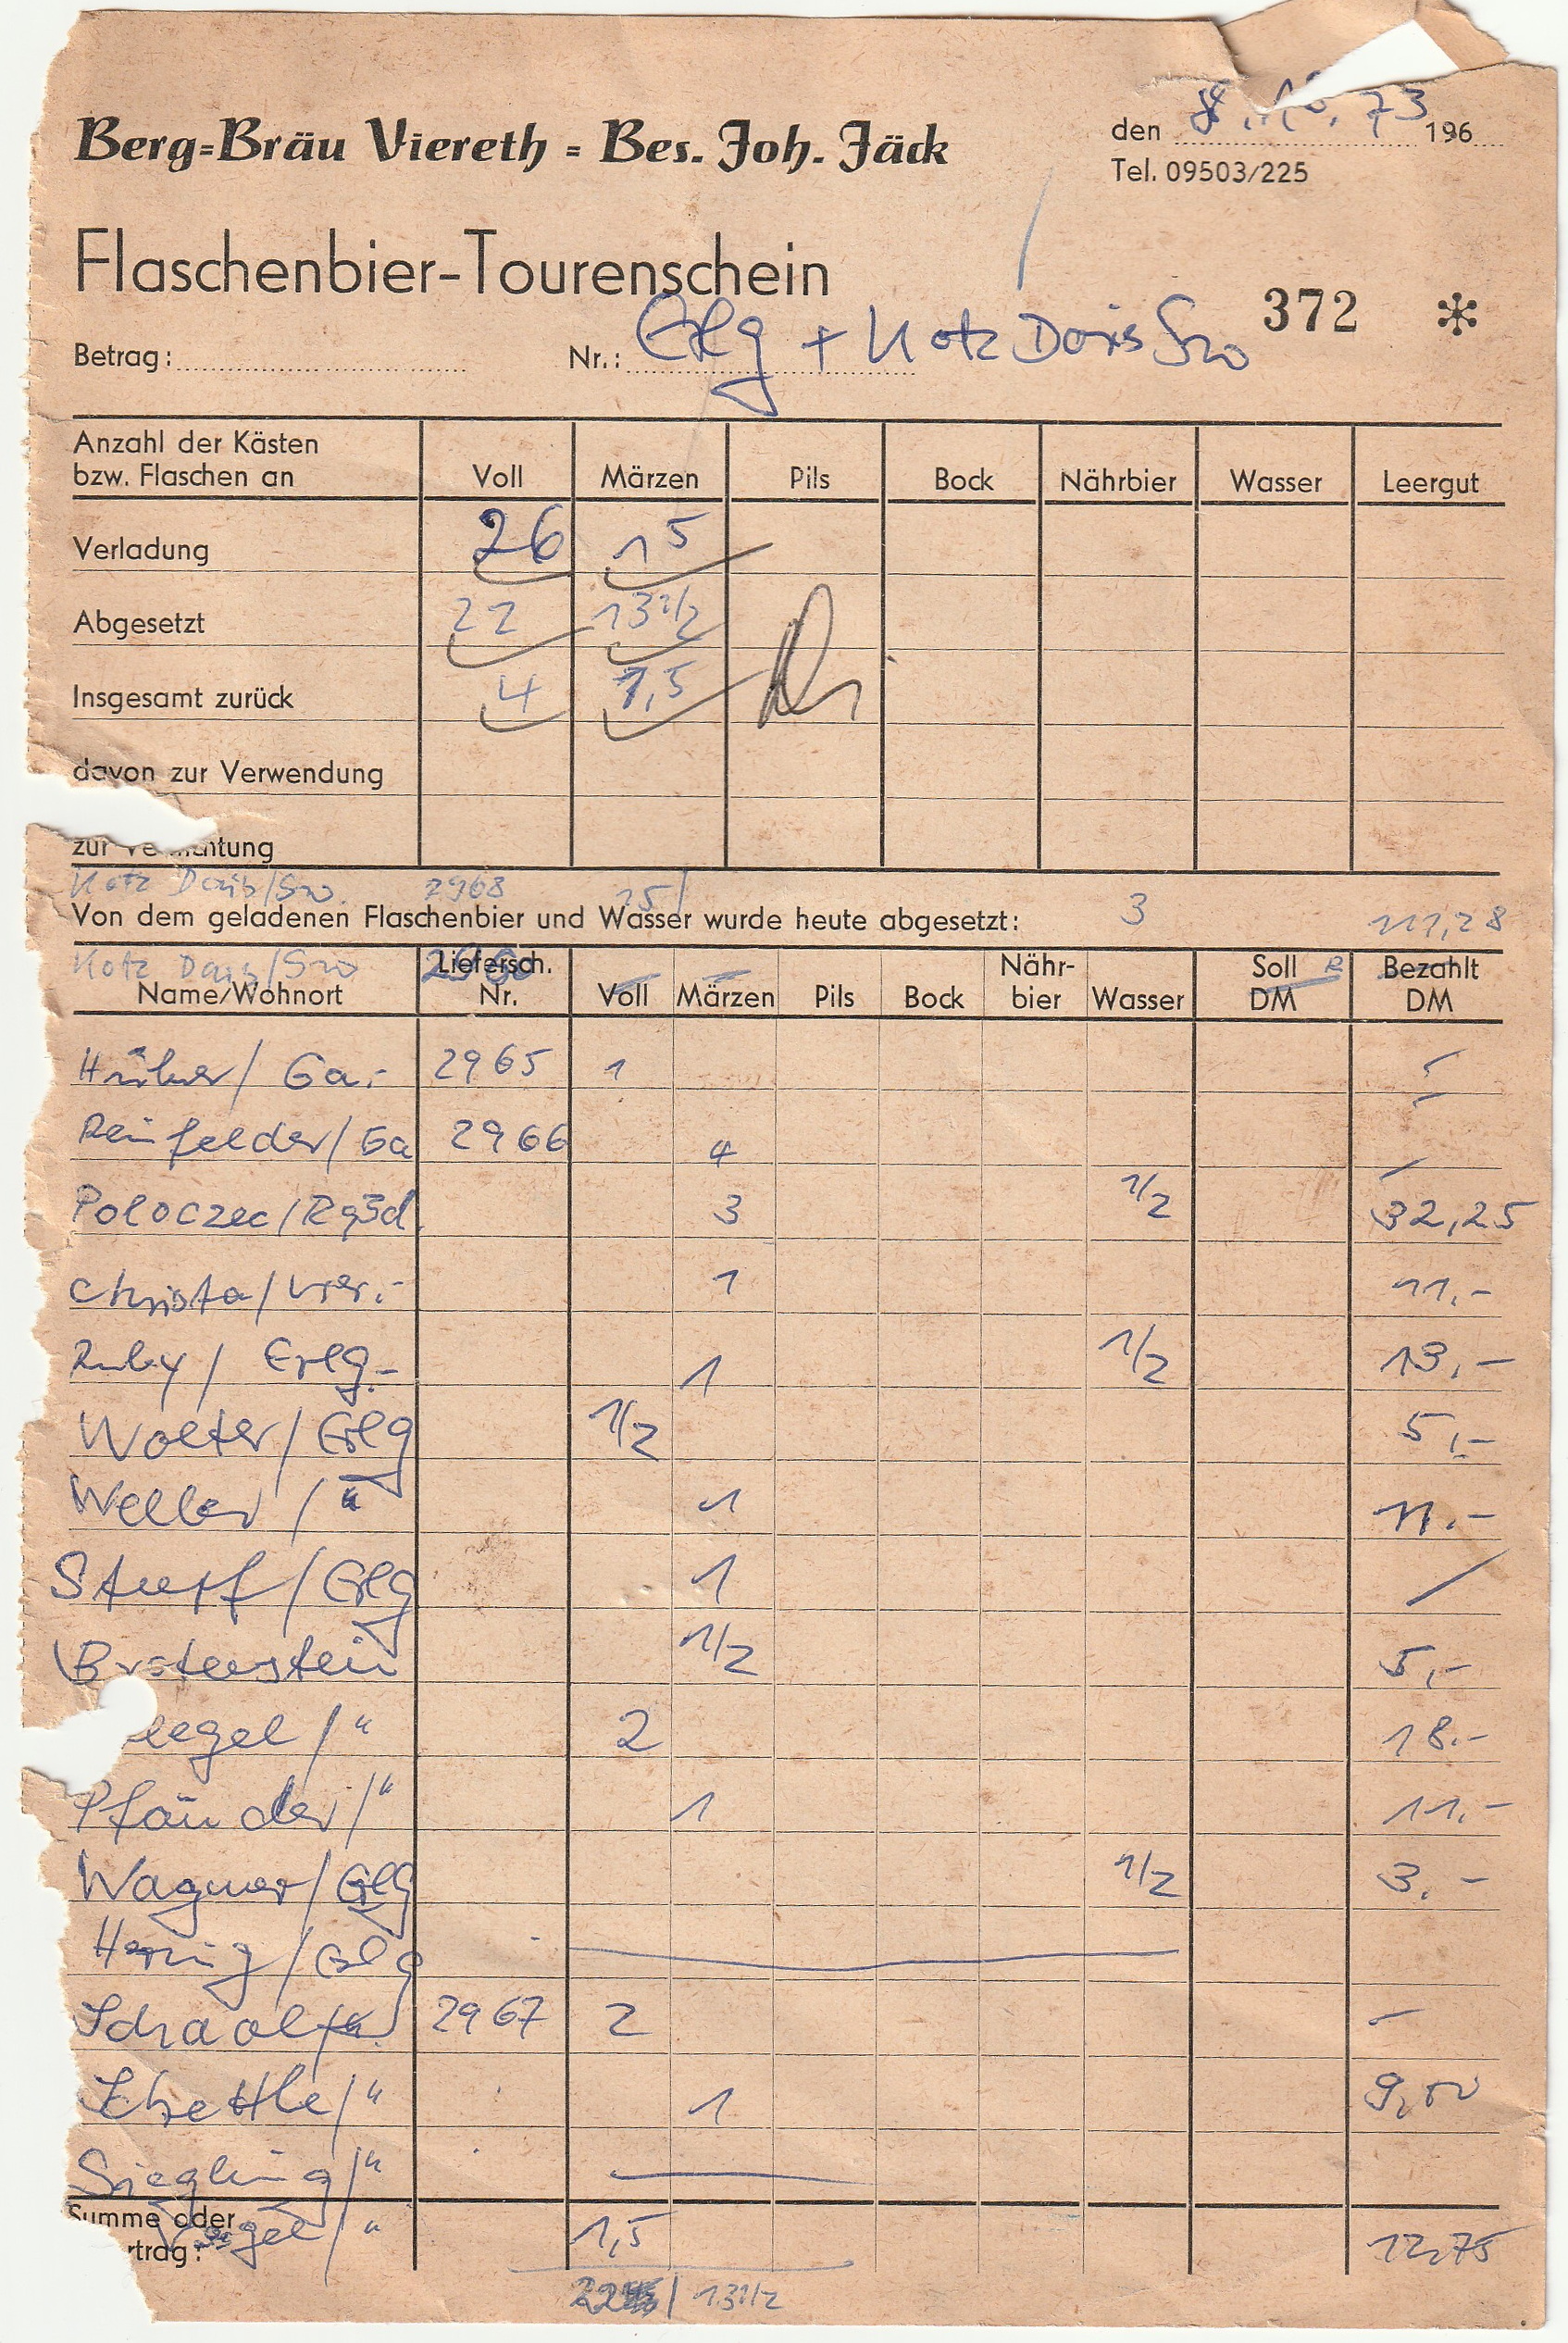 Berg=Bräu Viereth = Bes. Joh. Jäck
den 8. 10. 73 196
Tel. 09503/225
Flaschenbier-Tourenschein
372 *
Betrag: Nr.: Erlg + Kotz Doris
Anzahl der Kästen
bzw. Flaschen an Voll Märzen Pils Bock Nährbier Wasser Leergut
Verladung 26 15
Abgesetzt 22 13 1/2
Insgesamt zurück 4 1,5
davon zur Verwendung
zur
Kotz Doris 2968 15/ 3 111,28
Von dem geladenen Flaschenbier und Wasser wurde heute abgesetzt:
Kotz
Name/Wohnort Liefersch. Nr. Voll Märzen Pils Bock Nähr-bier Wasser Soll DM Bezahlt DM
Hübner / Ga.- 2965 1 -
Reinfelder / Ga 2966 4 -
Poloczec / 3 1/2 32,25
Christa / Vier.- 1 11.-
Ruby / Erlg.- 1 1/2 13,-
Wolter / Erlg 1/2 5,-
Weller / " 1 11.-
Stumpf / Erlg 1 /
1/2 5,-
egel / " 2 18.-
Pfänder / " 1 11.-
Wagner / Erlg 1/2 3.-
Hennig / Erlg
2967 2 -
1 9,50
Siegling / "
Summe oder
rtrag: Vogel / " 1,5 12,75
22 / 13 1/2